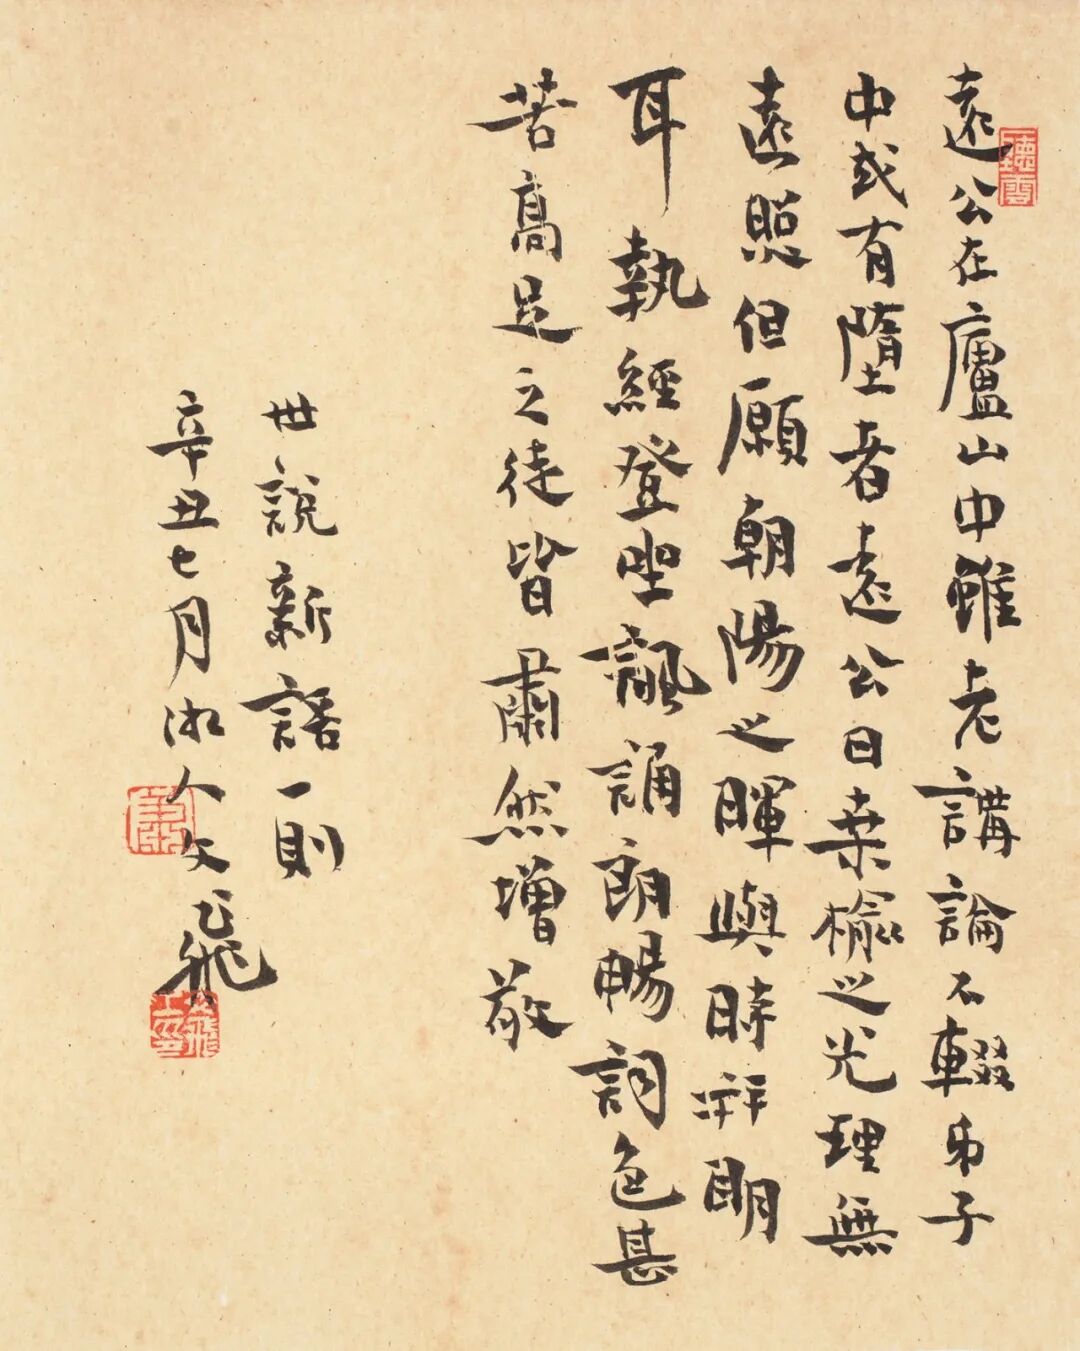 遠公在廬山中雖老講論不輟弟子
中或有墮者遠公曰桑榆之光理無
遠照但願朝陽之暉與時並明
耳執經登坐諷誦朗暢詞色甚
苦高足之徒皆肅然增敬
世說新語一則
辛丑七月湘人文飛